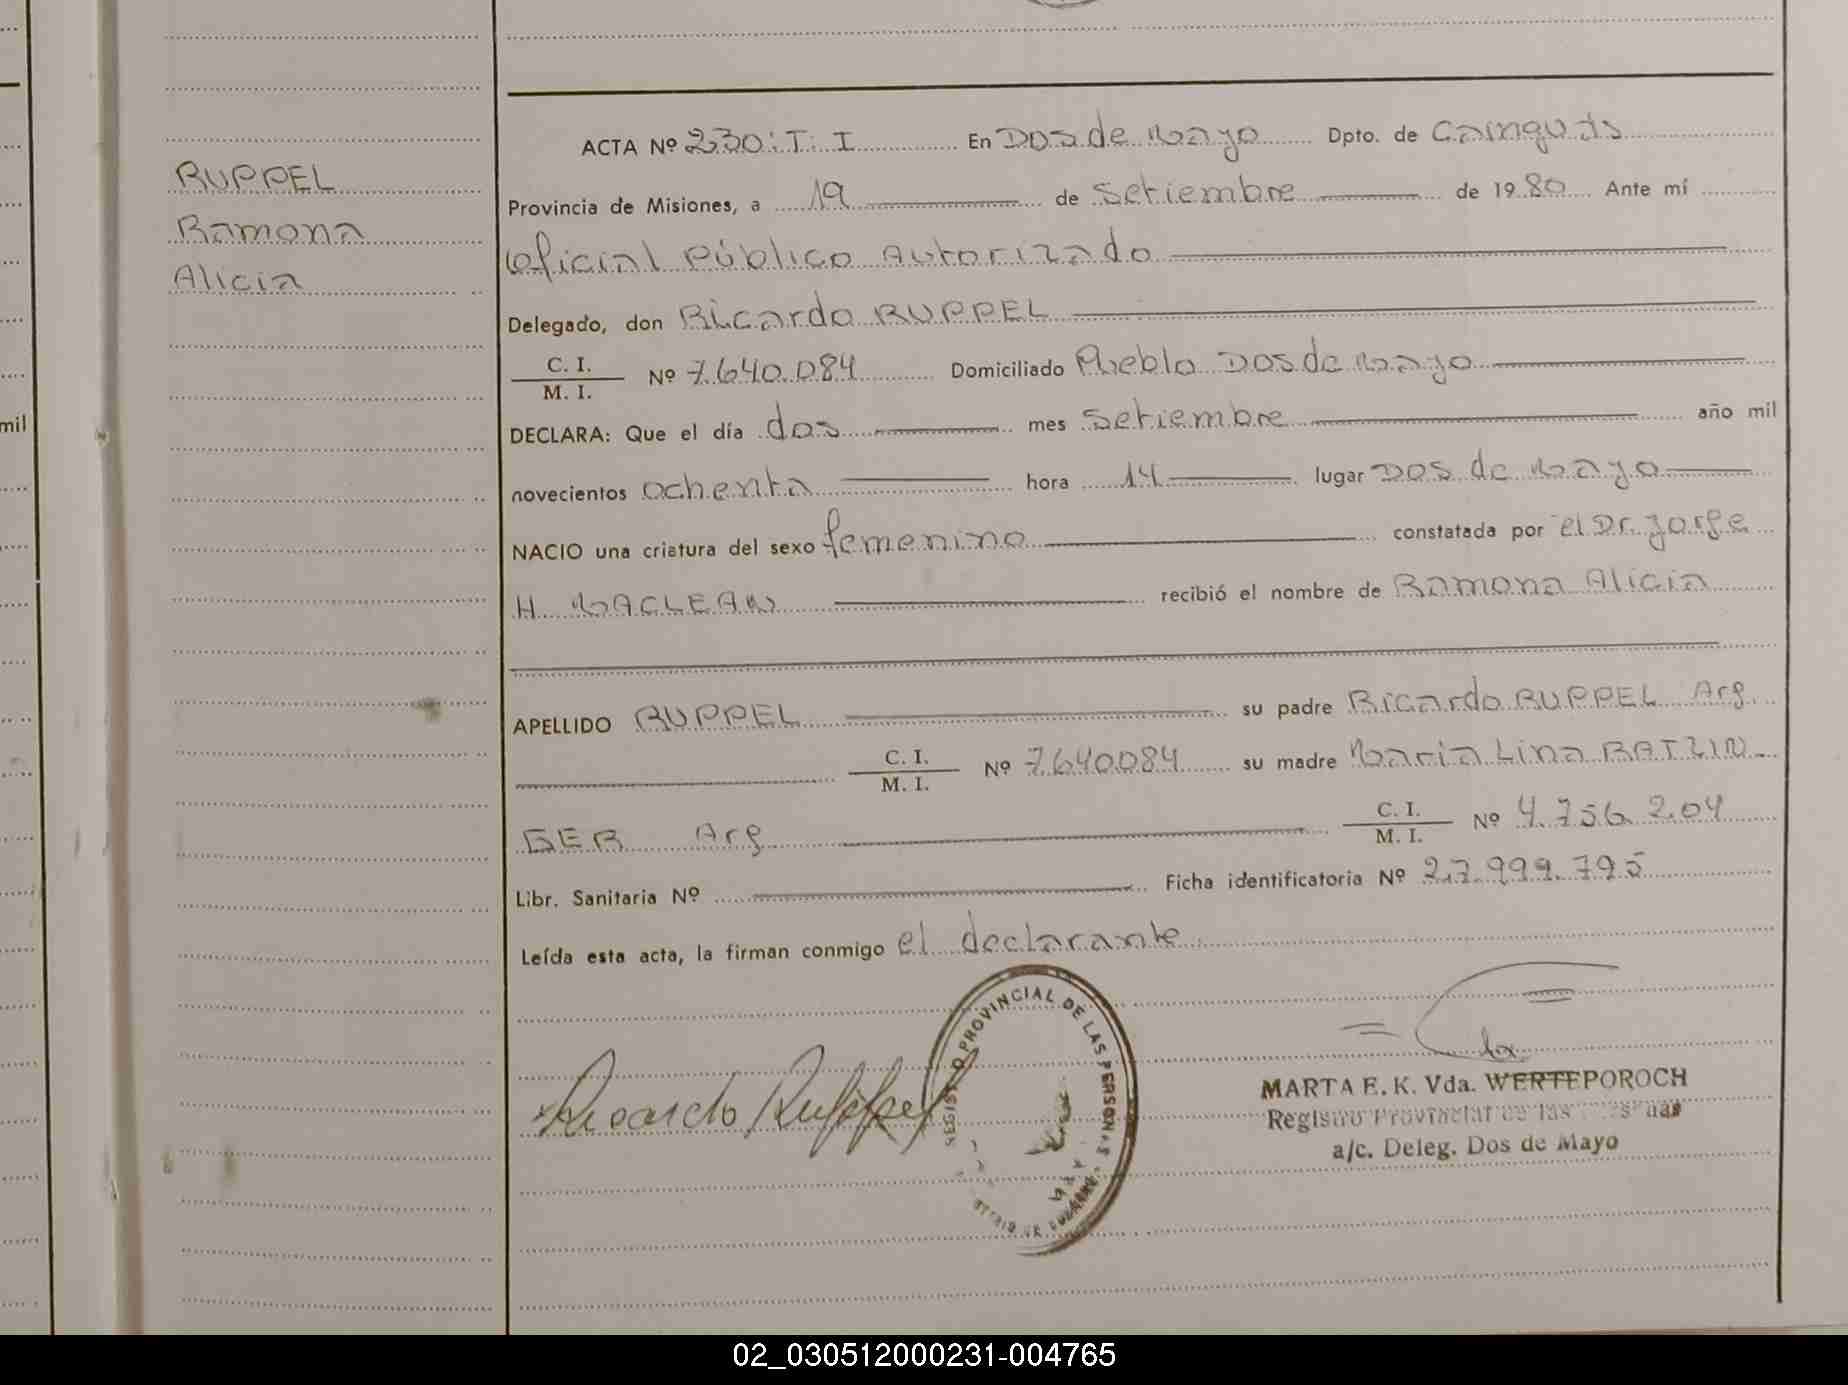 mil
RUPPEL
Ramona
Alicia
ACTA Nº 230: T: I En Dos de Mayo Dpto. de Cainguás
Provincia de Misiones, a 19 de Setiembre de 1980 Ante mí
Oficial Público Autorizado
Delegado, don Ricardo RUPPEL
C. I.
M. I. Nº 7.640.084 Domiciliado Pueblo Dos de Mayo
DECLARA: Que el día dos mes Setiembre año mil
novecientos ochenta hora 14 lugar Dos de Mayo
NACIO una criatura del sexo femenino constatada por el Dr. Jorge
H. MACLEAN recibió el nombre de Ramona Alicia
APELLIDO RUPPEL su padre Ricardo RUPPEL Arg.
C. I.
M. I. Nº 7.640.084 su madre Maria Lina RATZIN-
GER Arg C. I.
M. I. Nº 4.756.204
Libr. Sanitaria Nº Ficha identificatoria Nº 27.999.795
Leída esta acta, la firman conmigo el declarante
Ricardo Ruppel
PROVINCIAL DE LAS PERSONAS
MARTA E. K. Vda. WERTEPOROCH
Registro Provincial de las Personas
a/c. Deleg. Dos de Mayo
02_030512000231-004765